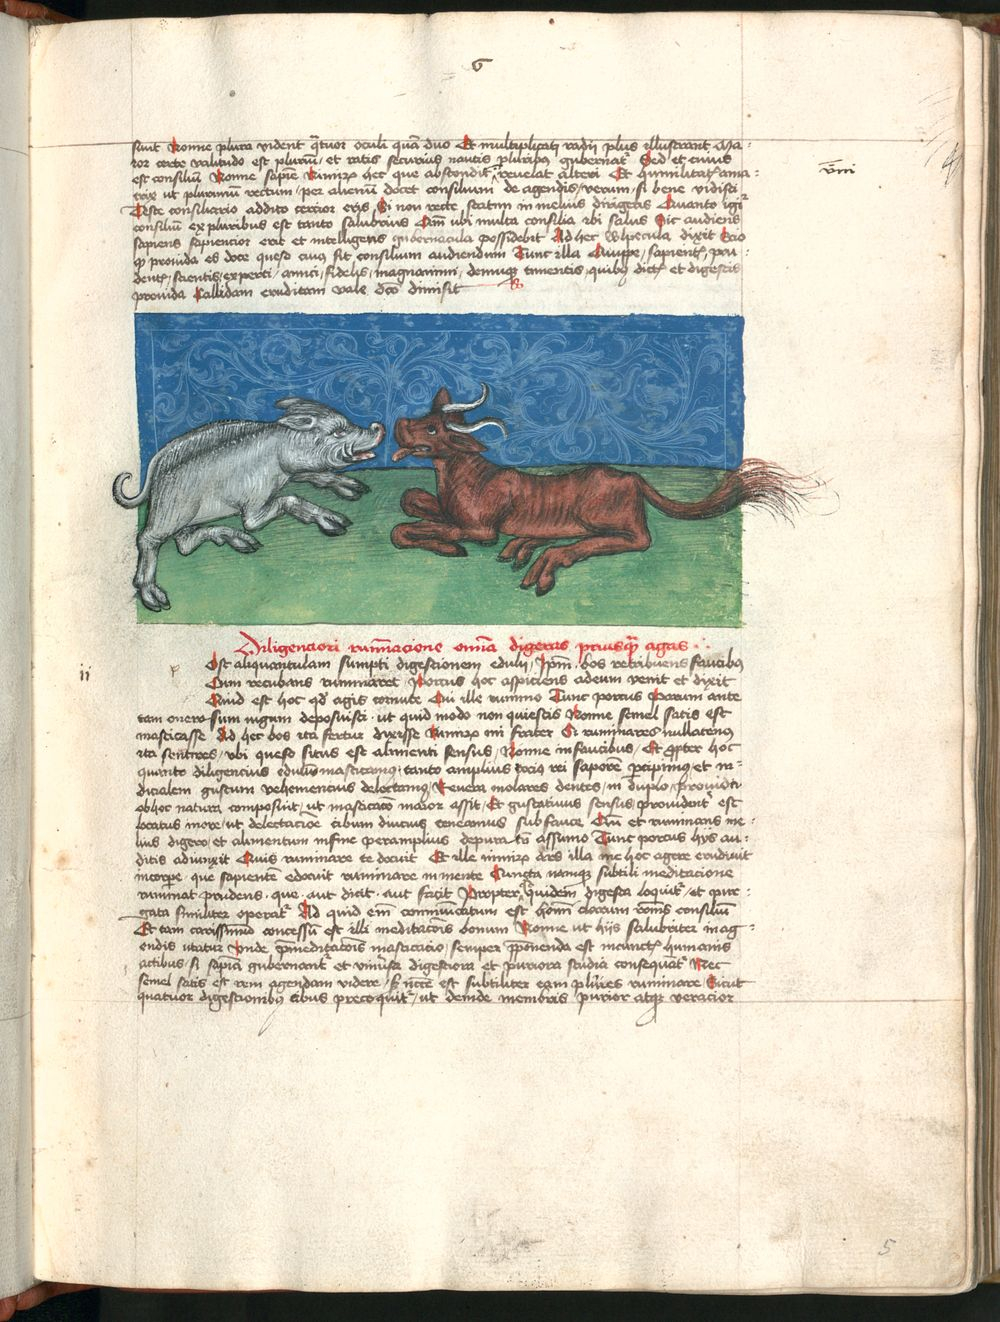 sunt Nonne plura vident qͣtuor oculi quā duo Et multiplicati radii plus illustrant Ma⸗
ior certe valitudo est plurium et ratis securius nautis pluribus gubernatʳ Sed et cuius
est consilium Nonne sapiē hec que abscondit revelat alteri Et humilitatē ama⸗
ut plurimum rectum per alienum docet consilium de agendis verum si bene vidisti
Teste consiliario addito certior eris Si non recte statim in melius dirigeris Quanto igiʳ
consilium ex pluribus est tanto salubrius Cum ubi multa consilia ibi salus Sic audiens
sapiens sapiencior erit et intelligens gubernacula possidebit Ad hec vulpecula dixit Scio
qͥ provida es doce queso cuius sit consilium audiendum Tunc illa sapientis pru⸗
dentis scientis experti amici fidelis magnanimi denique timentis quibus dictis et digestis
provida Callidam eruditam vale dco dimisit
v
viii
Diligenciori ruminacione omnia digeras priusqͣ agas
ii
Post aliquantulam sumpti digestionem edulii Ipm̄ bos retribuens faucibus
Cum recubans ruminaret Porcus hoc aspiciens ad eum venit et dixit
Quid est hoc qd agis cornute Cui ille rumino Tunc porcus Parum ante
tam onerosum iugum deposuisti ut quid modo non quiescis Nonne semel satis est
masticasse Ad hec bos ita fertur dixisse mi frater Si ruminares nullatenus
ita sentires ubi queso situs est alimenti sensus Nonne in faucibus Et propter hoc
quanto diligencius edulium masticamus tanto amplius tocius rei saporem percipimus et in⸗
dicialem gustum vehemencius delectamus Revera molares dentes in duplo
ob hoc natura composuit ut masticato maior assit Et gustativus sensus providenter est
locatus more ut delectacione cibum diucius teneamus sub fauce Cum et ruminans me⸗
lius digero et alimentum in fine peramplius depuratum assumo Tunc porcus hijs au⸗
ditis adiunxit Quis ruminare te docuit Et ille ars illa me hoc agere erudivit
incorpore que sapientem edocuit ruminare in mente Cuncta namque subtili meditacione
ruminat prudens que aut dicit aut facit Propter quidem digesta loquitʳ et pur⸗
gata similiter operatʳ Ad quid enim communicatum est homini clarum consilium
Et tam carissimum concessum est illi meditacionis bonum Nonne ut hijs salubriter in ag⸗
endis utatur Unde premeditacionis masticacio semper preponenda est in cunctis humanis
actibus si sapiencia gubernantʳ et universa digestiora et puriora studia consequantʳ Nec
semel satis est rem agendam videre necesse est subtiliter eam pluries ruminare Sicut
quatuor digestionibus cibus precoquitʳ ut deinde membris purior atque veracior
5